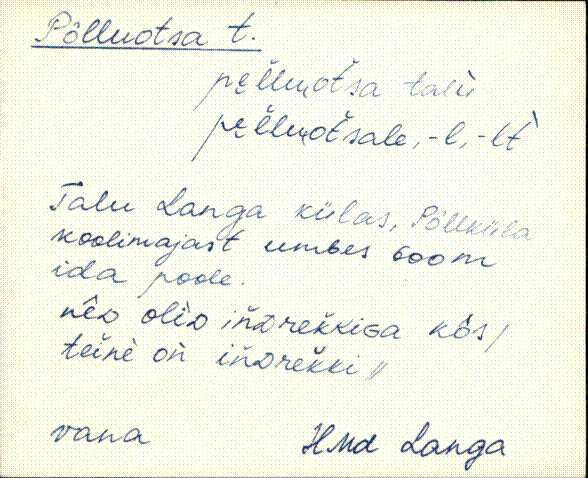 Põlluotsa t.
pe̮l̆lu̯ot̆sa talù
pe̮l̆lu̯ot̆sale, -l, -lt̀
Talu Langa külas, Põllküla
koolimajast umbes 600 m
ida poole.
nêᴅ olìᴅ iňᴅrek̆kiɢa kôs/
teĭnè oň iňᴅrek̆ki //
vana
HMd Langa